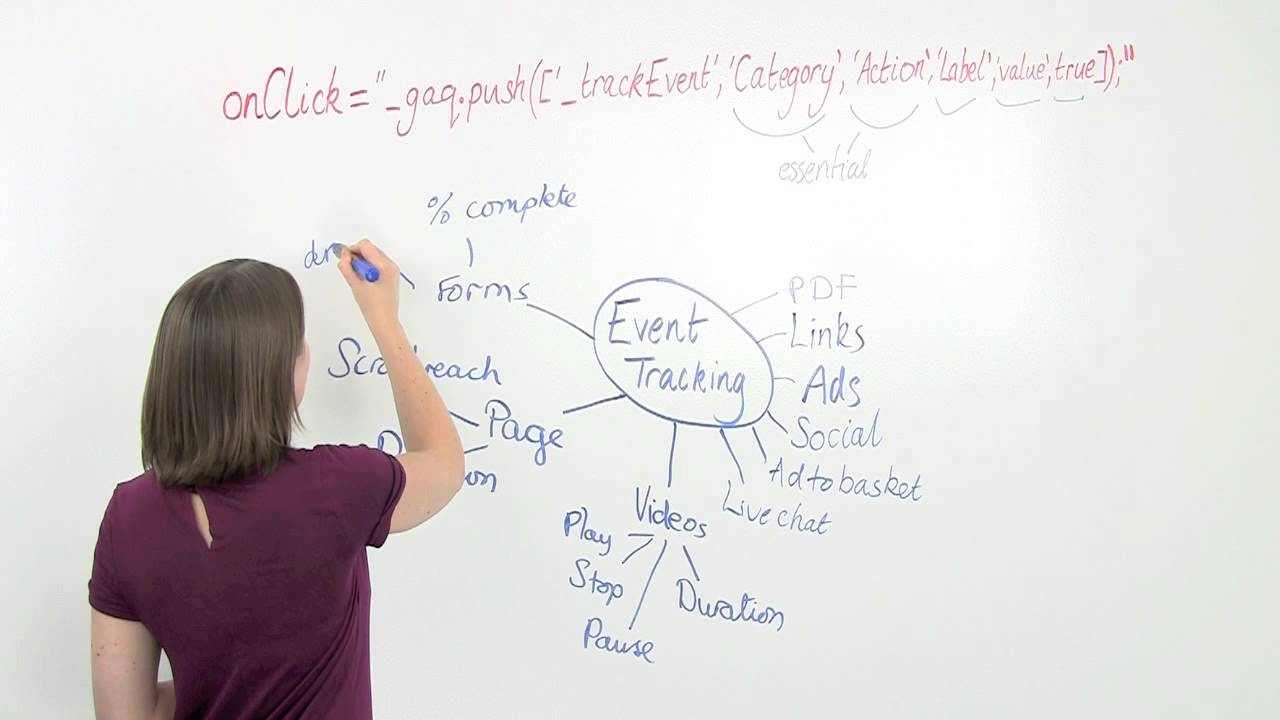 onClick="_gaq.push(['_trackEvent','Category','Action','Label','value',true]);"
essential
% complete
Forms
Event
Tracking
PDF
Links
Ads
Social
Ad to basket
Live chat
Page
Videos
Play
Stop
Pause
Duration